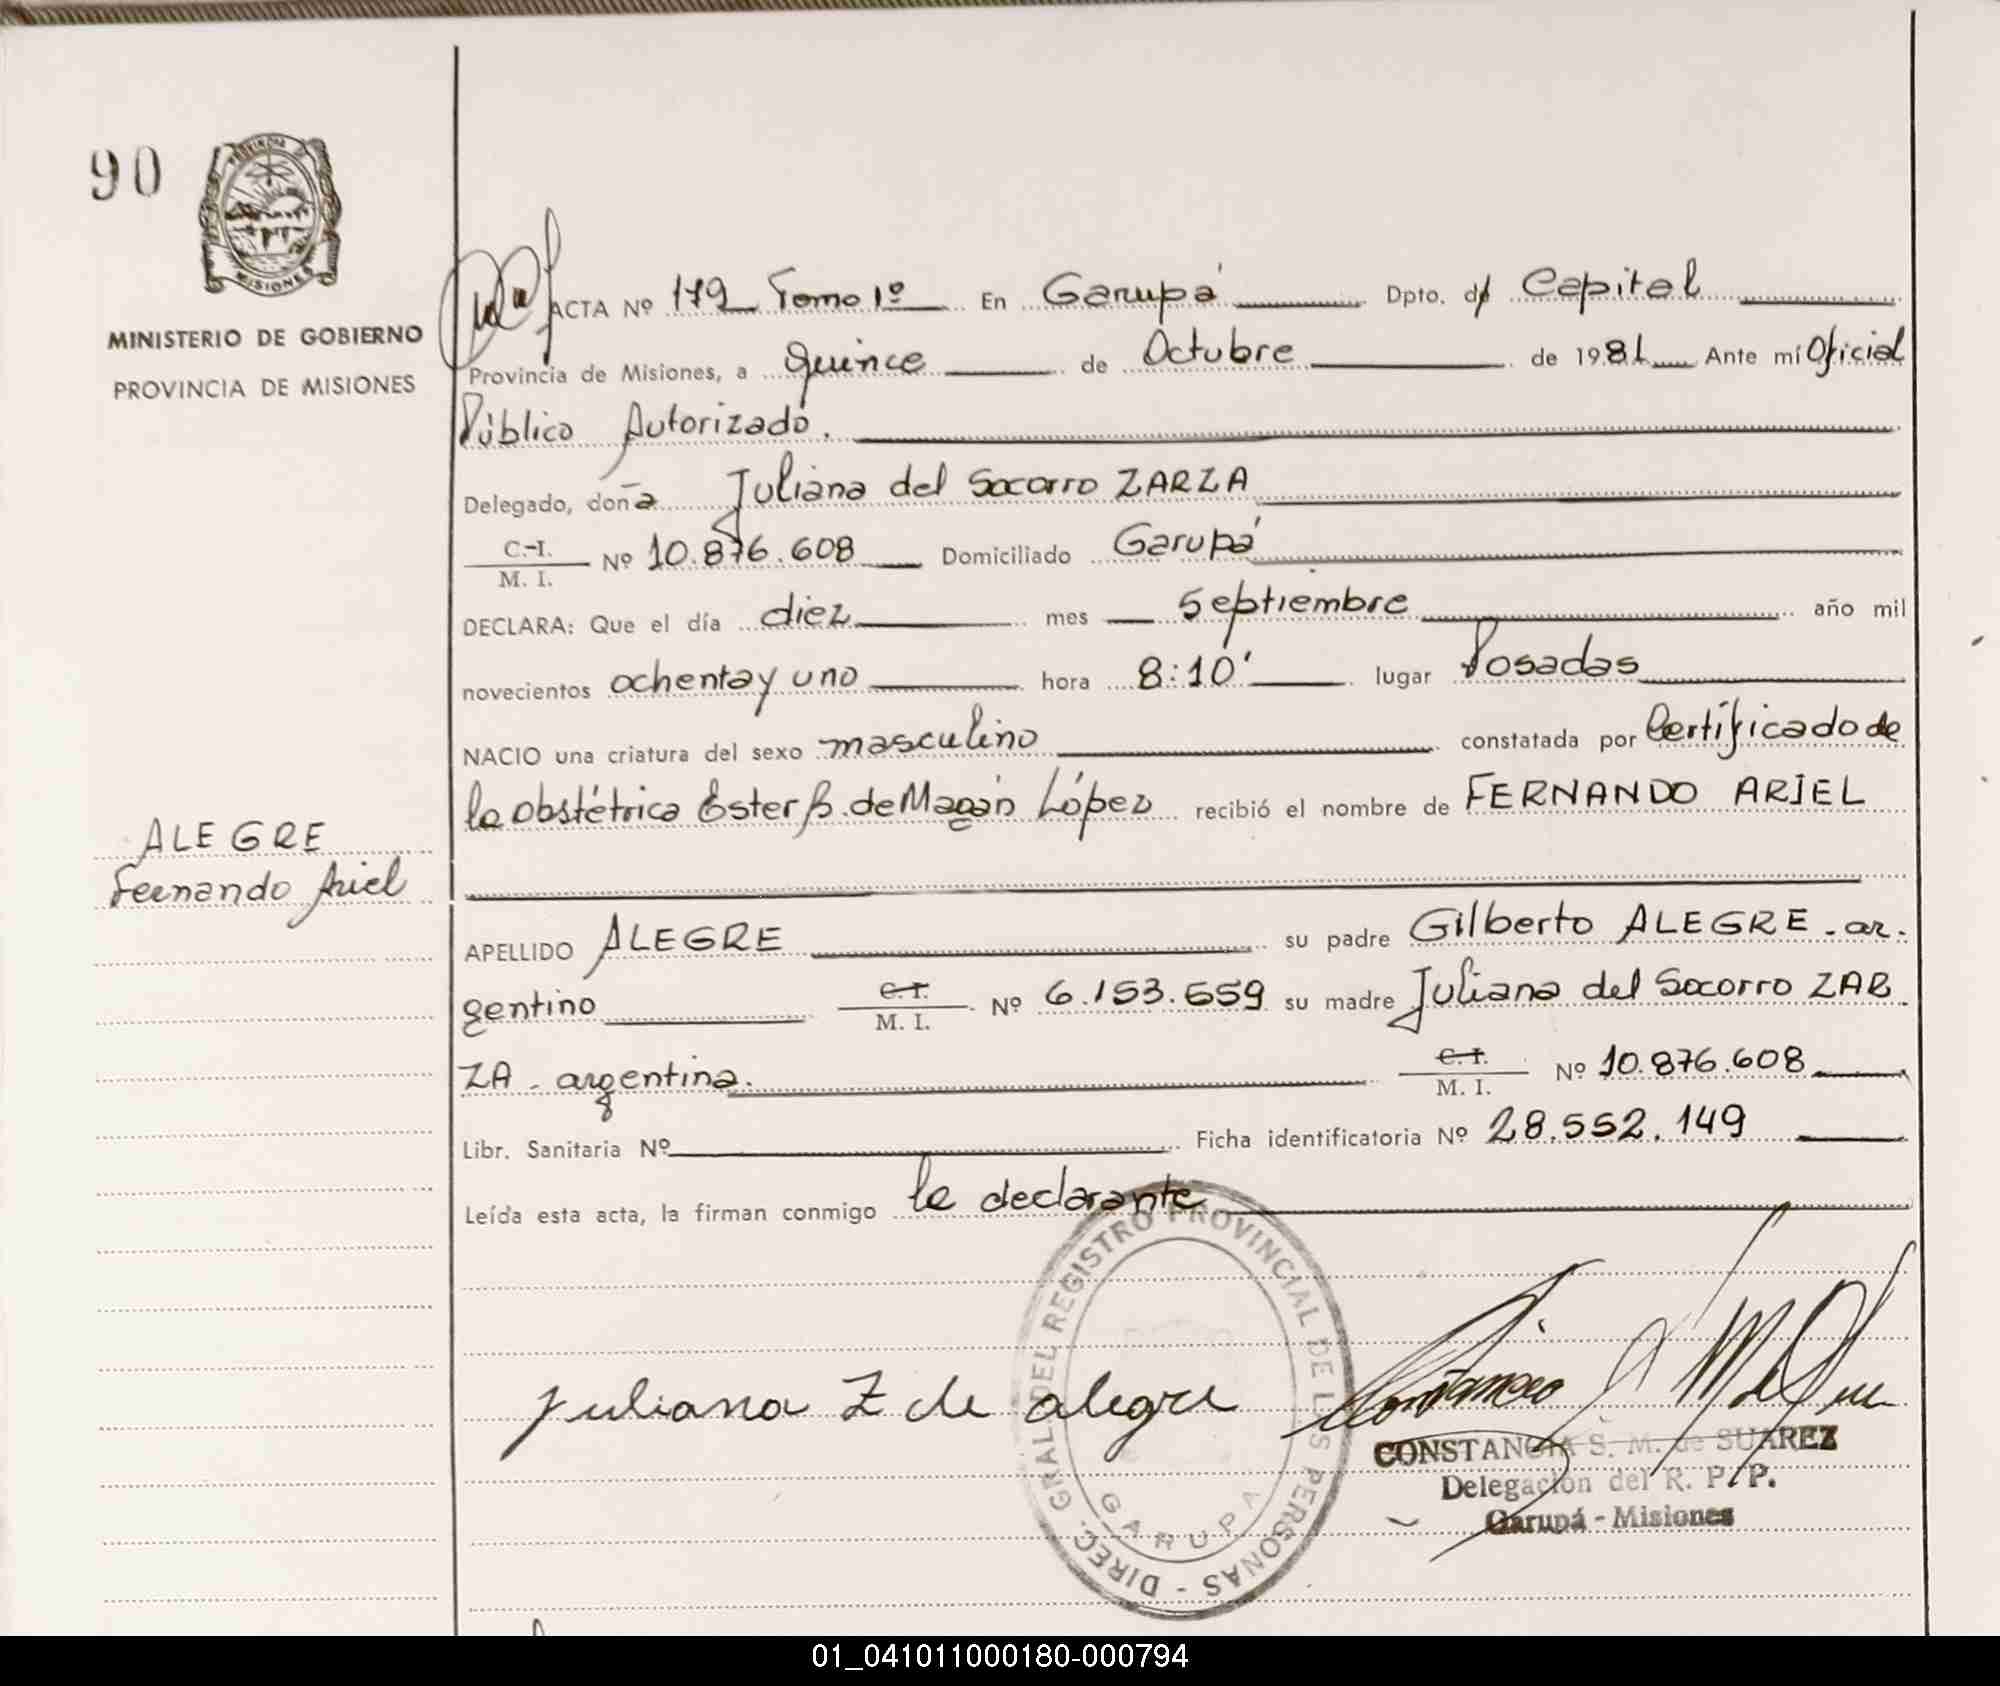 90
PROVINCIA D
MISIONES
MINISTERIO DE GOBIERNO
PROVINCIA DE MISIONES
ACTA Nº 179 Tomo 1º En Garupá Dpto. d Capital
Provincia de Misiones, a quince de Octubre de 1981 Ante mí Oficial
Público Autorizado.
Delegado, doña Juliana del Socorro ZARZA
C.I. / M. I. Nº 10.876.608 Domiciliado Garupá
DECLARA: Que el día diez mes Septiembre año mil
novecientos ochenta y uno hora 8:10' lugar Posadas
NACIO una criatura del sexo masculino constatada por Certificado de
la obstétrica Ester B. de Magán López recibió el nombre de FERNANDO ARIEL
ALEGRE
Fernando Ariel
APELLIDO ALEGRE su padre Gilberto ALEGRE - ar-
gentino C.I. / M. I. Nº 6.153.559 su madre Juliana del Socorro ZAR
ZA - argentina. C.I. / M. I. Nº 10.876.608
Libr. Sanitaria Nº Ficha identificatoria Nº 28.552.149
Leída esta acta, la firman conmigo la declarante
DIREC. GRAL DEL REGISTRO PROVINCIAL DE LAS PERSONAS -
GARUPA
Juliana Z de alegre
CONSTANCIA S. M. de SUAREZ
Delegación del R. P. P.
Garupá - Misiones
01_041011000180-000794